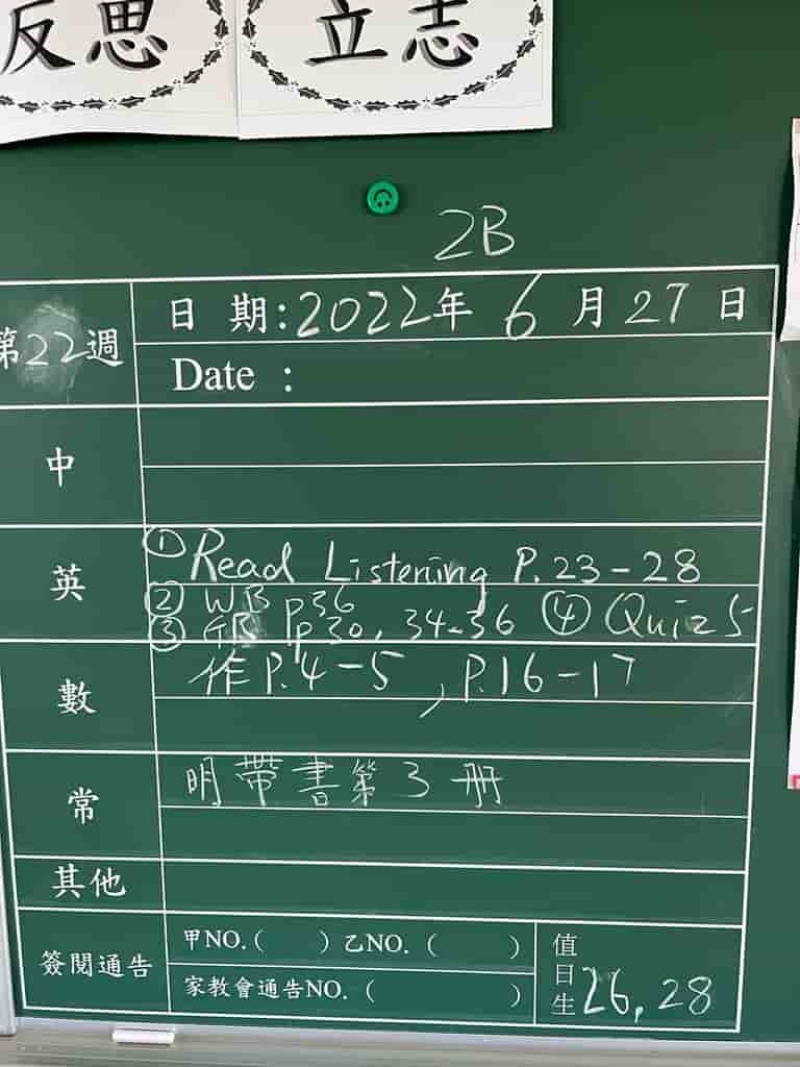 反思 立志
2B
第22週
日 期:2022年 6 月 27 日
Date :
中
英
① Read Listening P.23-28
② WB P36
③ GB Pp30, 34-36 ④ Quiz 5
數
作P.4-5, P.16-17
常
明帶書第3冊
其他
簽閱通告
甲NO.( ) 乙NO. ( )
家教會通告NO. ( )
值日生 26, 28